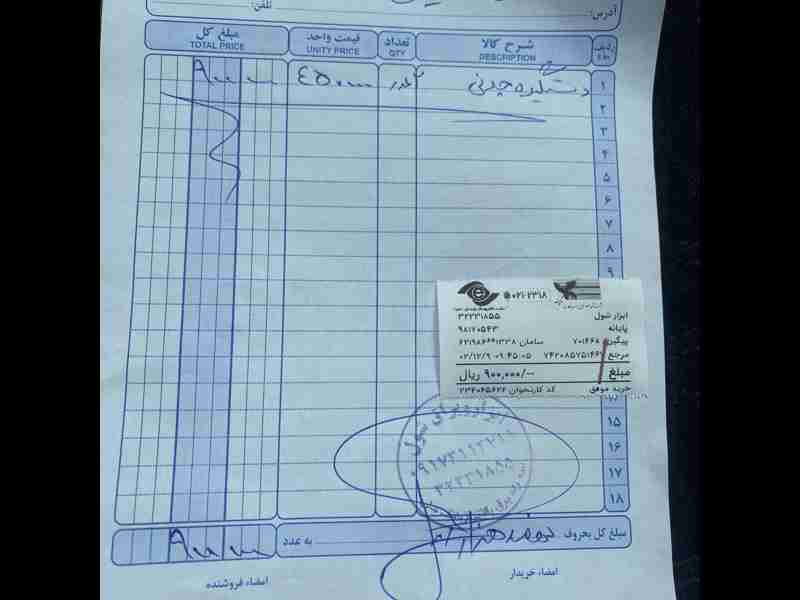 آدرس: تلفن:
ردیف شرح کالا تعداد قیمت واحد مبلغ کل
DESCRIPTION QTY UNITY PRICE TOTAL PRICE
۱ دستگیره چدنی ۲عدد ٤٥٠٠٠٠
۲
۳
۴
۵
۶
۷
۸
۹
۰۲۱-۲۳۱۸
ابزار شول
۳۲۲۳۱۸۵۵
پایانه ۹۸۱۲۰۵۴۳
پیگیری ۷۰۱۴۶۸ سامان ۶۲۱۹۸۶**۱۳۳۸
مرجع ۷۴۲۰۸۵۷۵۱۴۶۷ ۰۲/۱۲/۹ ۰۹:۴۵:۰۵
مبلغ ۹۰۰,۰۰۰/-- ریال
خرید موفق کد کارتخوان ۲۳۴۰۴۵۶۲۲
۱۵
۱۶
۱۷
۱۸
ابزار و یراق شول
۳۲۲۳۱۸۵۵
مبلغ کل بحروف نهصد هزار به عدد
امضاء خریدار امضاء فروشنده